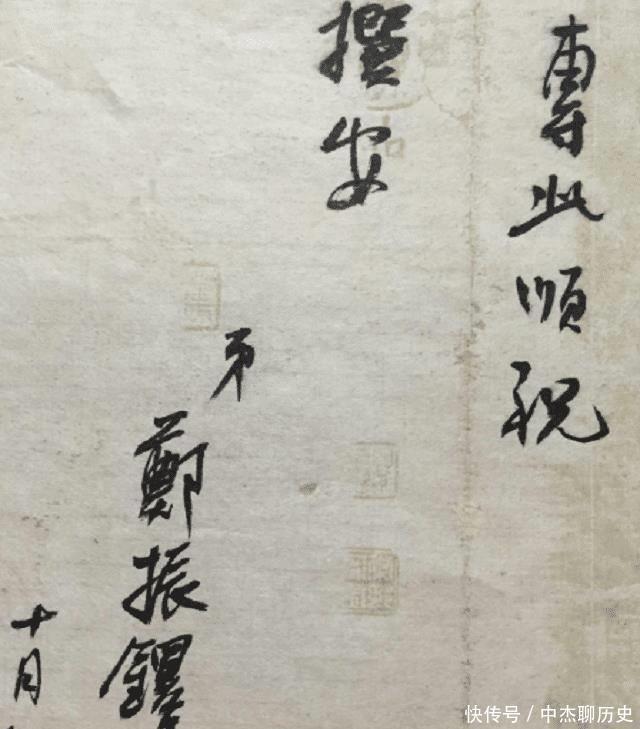 專此順祝
撰安
弟
鄭振鐸
十月
快传号/中杰聊历史